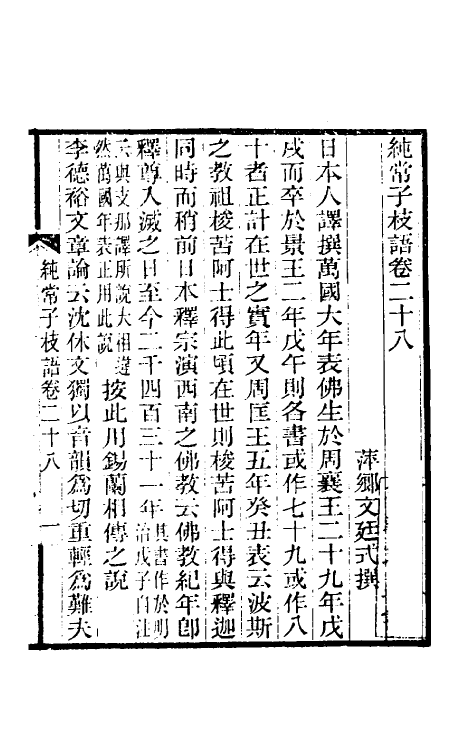 純常子枝語卷二十八
萍鄉文廷式撰
日本人譯撰萬國大年表佛生於周襄王二十九年戊
戌而卒於景王二年戊午則各書或作七十九或作八
十者正計在世之實年又周匡王五年癸丑表云波斯
之教祖梭苦阿士得此頃在世則梭苦阿士得與釋迦
同時而稍前日本釋宗演西南之佛教云佛教紀年卽
釋尊入滅之日至今二千四百三十一年其書作於明
治戊子自注
云與支那譯所說大相違
然萬國年表正用此說按此用錫蘭相傳之說
李德裕文章論云沈休文獨以音韻爲切重輕爲難夫
純常子枝語卷二十八
一